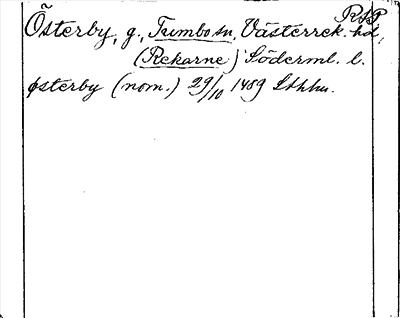 RSP
Österby, g., Tumbo sn, Västerrek. hd,
(Rekarne) Söderml. l.
østerby (nom.) 29/10 1489 Sthhu.